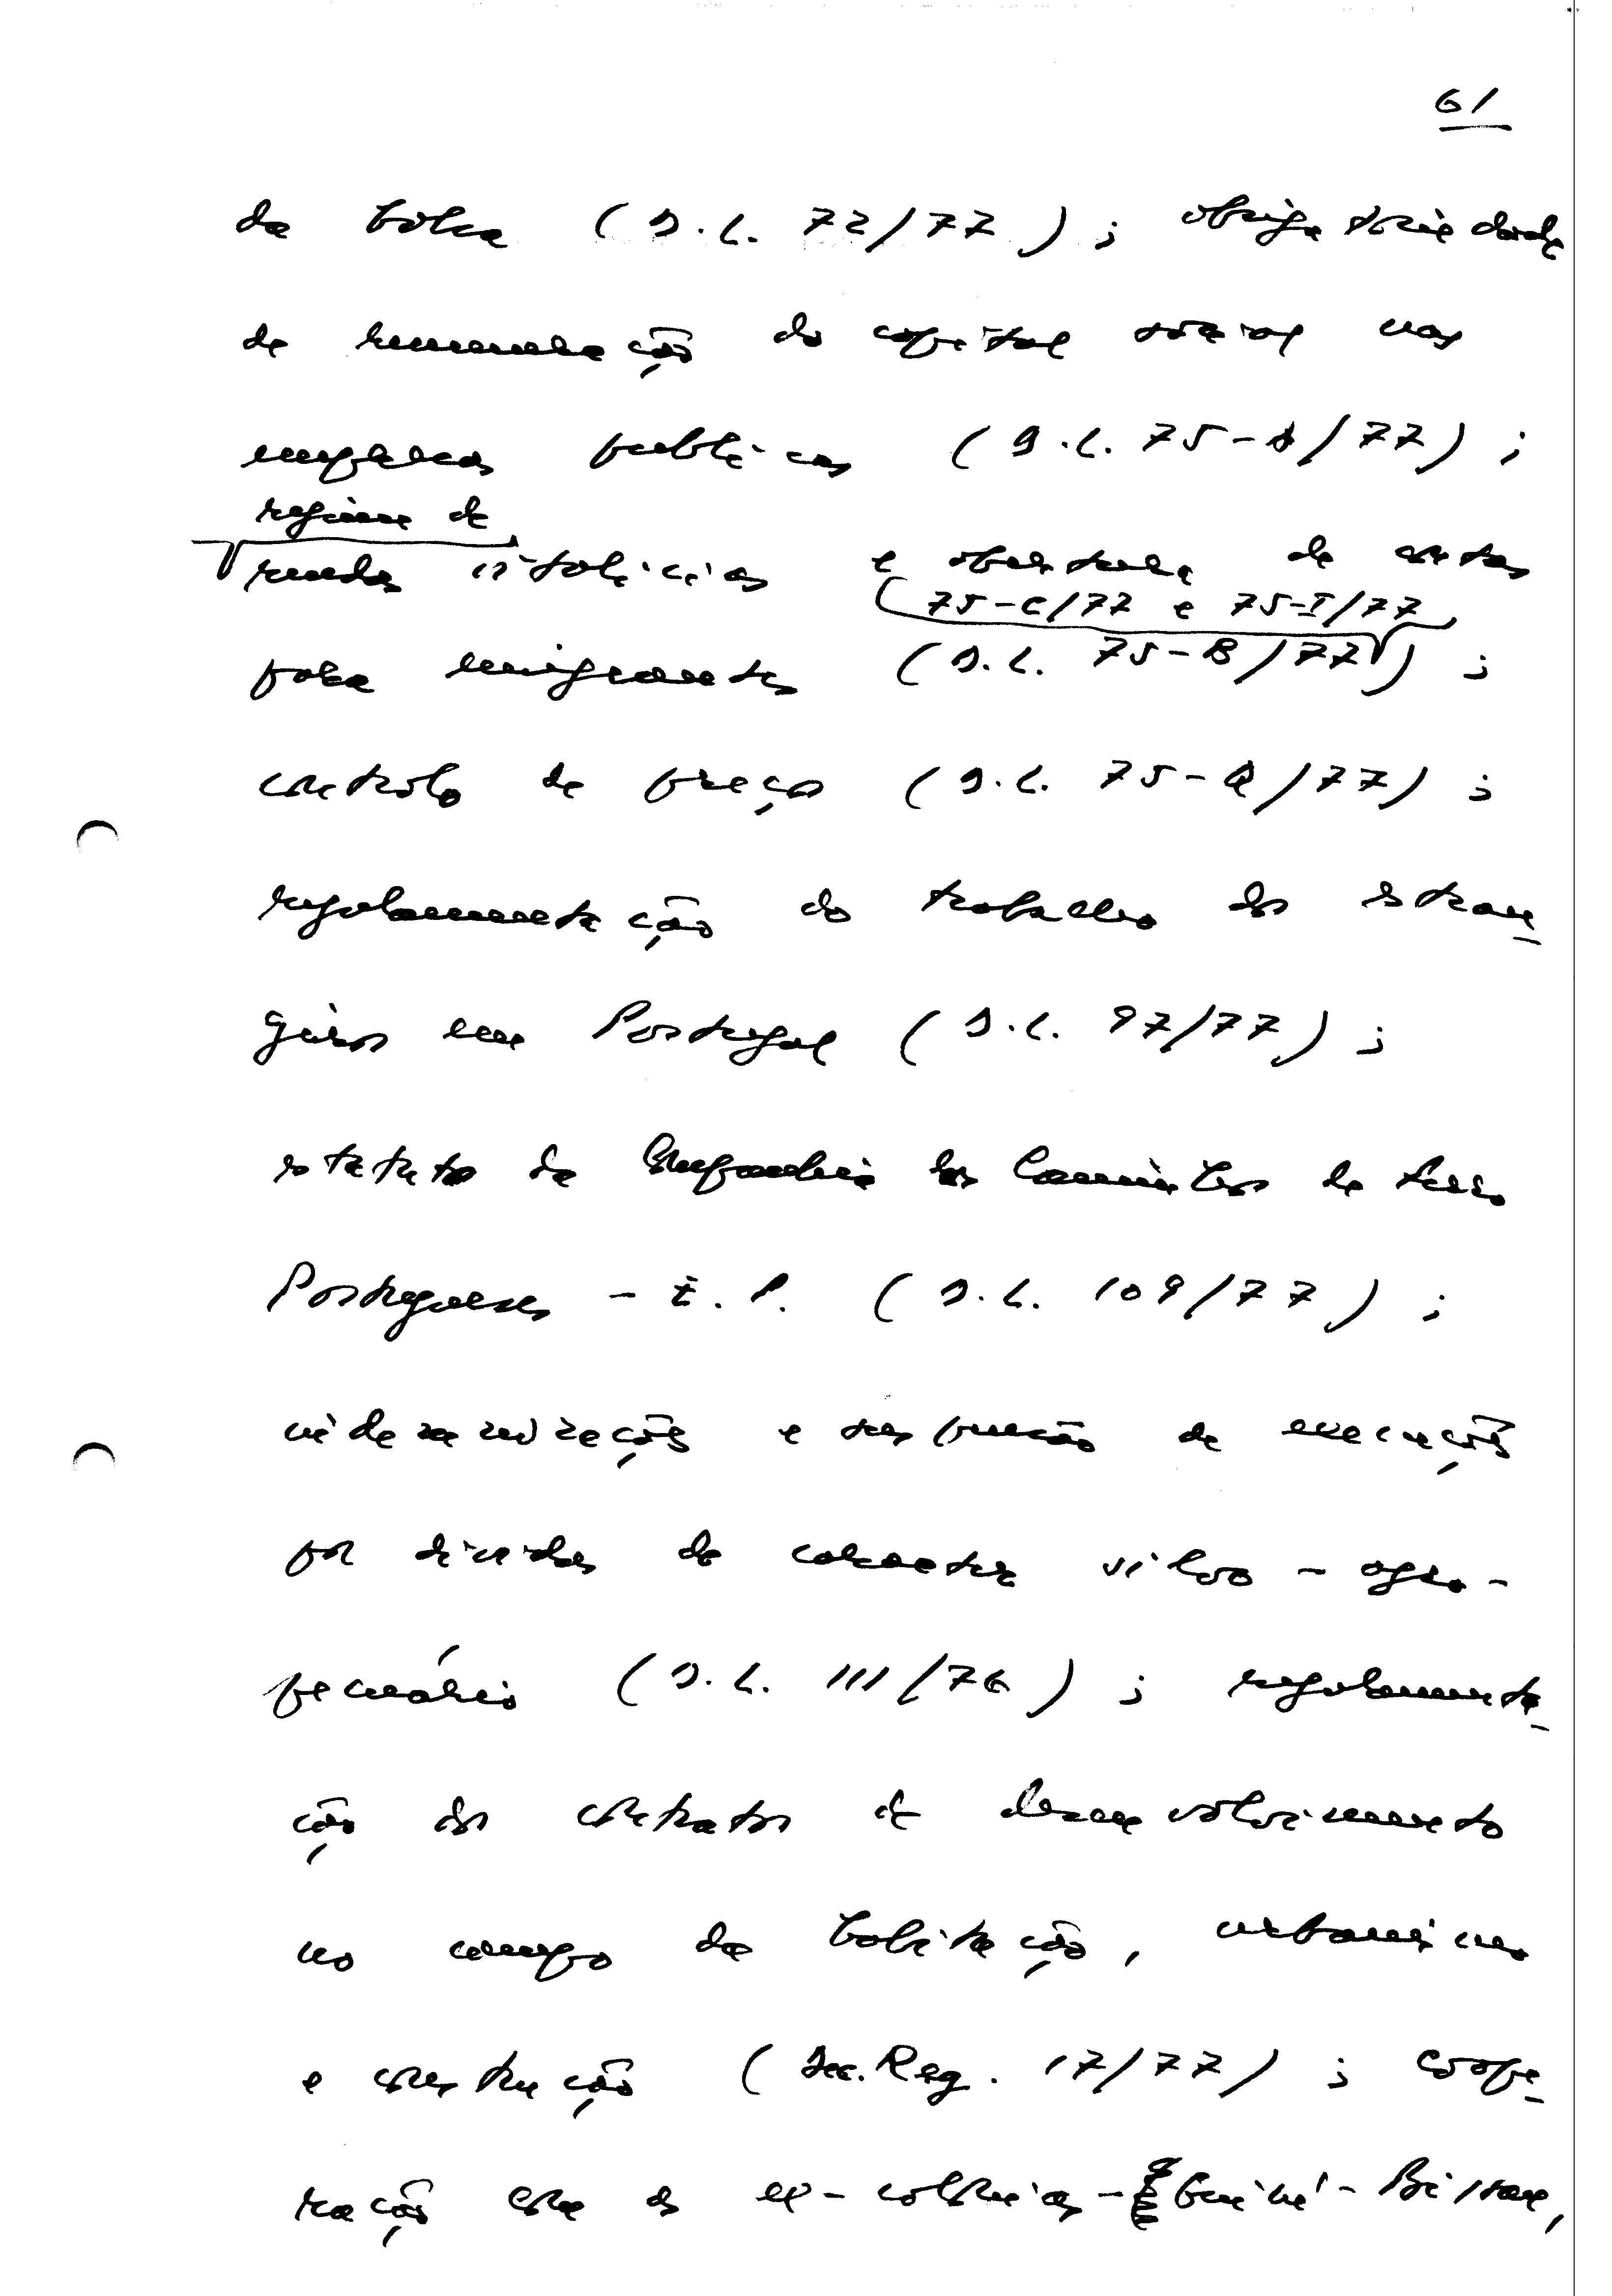 61
da bolsa (D.L. 72/77); obrigatoriedade
de remuneração do capital social nas
empresas públicas (D.L. 75-A/77);
regime de
rendas vitalícias e abertura de contas
75-C/77 e 75-I/77
para emigrantes (D.L. 75-B/77);
controlo de preços (D.L. 75-Q/77);
regulamentação do trabalho dos estran-
geiros em Portugal (D.L. 97/77);
estatuto da dos Caminhos de Ferro
Portugueses - E.P. (D.L. 109/77);
indemnizações e suspensão de execuções
por dívidas de carácter silvo-agro-
pecuário (D.L. 111/76); regulamenta-
ção dos contratos de desenvolvimento
no campo da habitação, urbanismo
e construção (Dec. Reg. 17/77); coope-
ração com as ex-colónias - Guiné-Bissau,